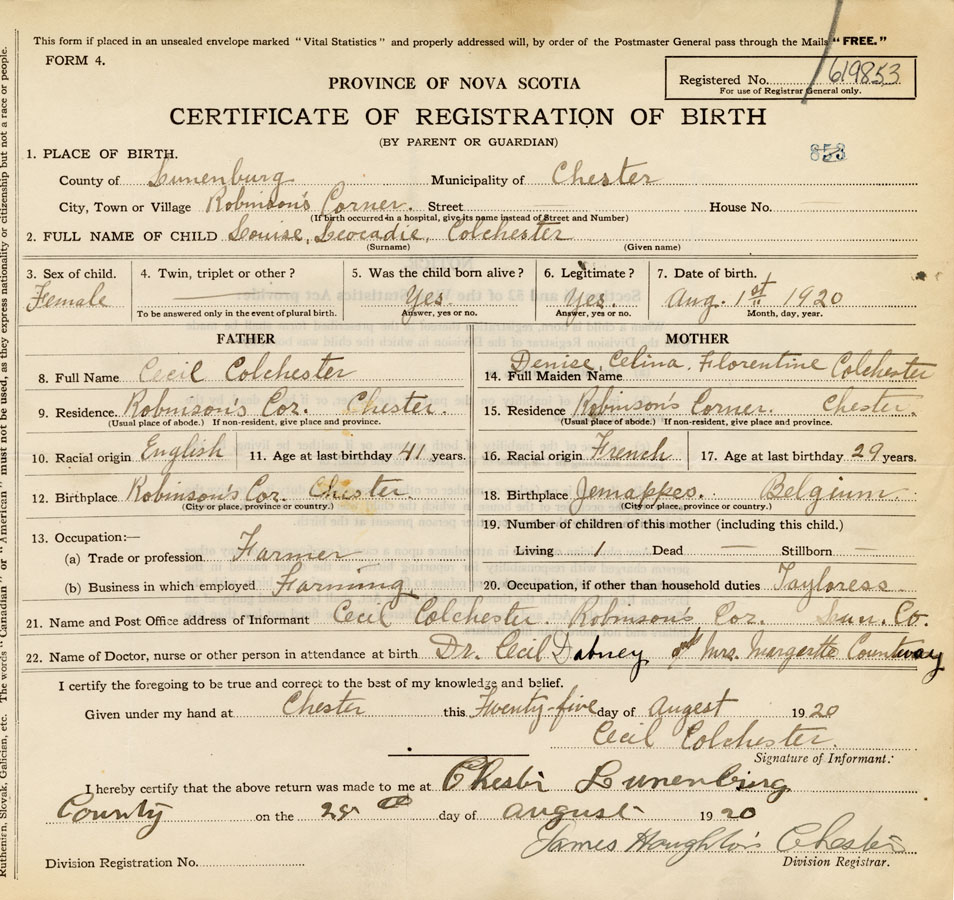 This form if placed in an unsealed envelope marked "Vital Statistics" and properly addressed will, by order of the Postmaster General pass through the Mails "FREE."
FORM 4.
Registered No. 619853
For use of Registrar General only.
PROVINCE OF NOVA SCOTIA
CERTIFICATE OF REGISTRATION OF BIRTH
(BY PARENT OR GUARDIAN)
853
1. PLACE OF BIRTH.
County of Lunenburg Municipality of Chester
City, Town or Village Robinson's Corner. Street House No.
(If birth occurred in a hospital, give its name instead of Street and Number)
2. FULL NAME OF CHILD Louise, Leocadie, Colchester
(Surname) (Given name)
3. Sex of child. 4. Twin, triplet or other? 5. Was the child born alive? 6. Legitimate? 7. Date of birth.
Female Yes. Yes. Aug. 1st 1920
To be answered only in the event of plural birth. Answer, yes or no. Answer, yes or no. Month, day, year.
FATHER MOTHER
8. Full Name Cecil Colchester 14. Full Maiden Name Denise, Celina, Florentine Colchester
9. Residence. Robinson's Cor. Chester. 15. Residence Robinson's Corner. Chester.
(Usual place of abode.) If non-resident, give place and province. (Usual place of abode.) If non-resident, give place and province.
10. Racial origin English 11. Age at last birthday 41 years. 16. Racial origin French 17. Age at last birthday 29 years.
12. Birthplace Robinson's Cor. Chester. 18. Birthplace Jemappes. Belgium.
(City or place, province or country.) (City or place, province or country.)
19. Number of children of this mother (including this child.)
13. Occupation:—
(a) Trade or profession Farmer Living 1 Dead — Stillborn —
(b) Business in which employed Farming 20. Occupation, if other than household duties Tayloress
21. Name and Post Office address of Informant Cecil Colchester. Robinson's Cor. Lun. Co.
22. Name of Doctor, nurse or other person in attendance at birth Dr. Cecil Dabney Mrs. Margertte Countway
I certify the foregoing to be true and correct to the best of my knowledge and belief.
Given under my hand at Chester this Twenty-five day of Augest 1920
Cecil Colchester.
Signature of Informant.
I hereby certify that the above return was made to me at Chester Lunenburg
County on the 28 day of august 1920
James Houghton Chester
Division Registration No. Division Registrar.
Ruthenian, Slovak, Galician, etc. The words "Canadian" or "American" must not be used, as they express nationality or citizenship but not a race or people.